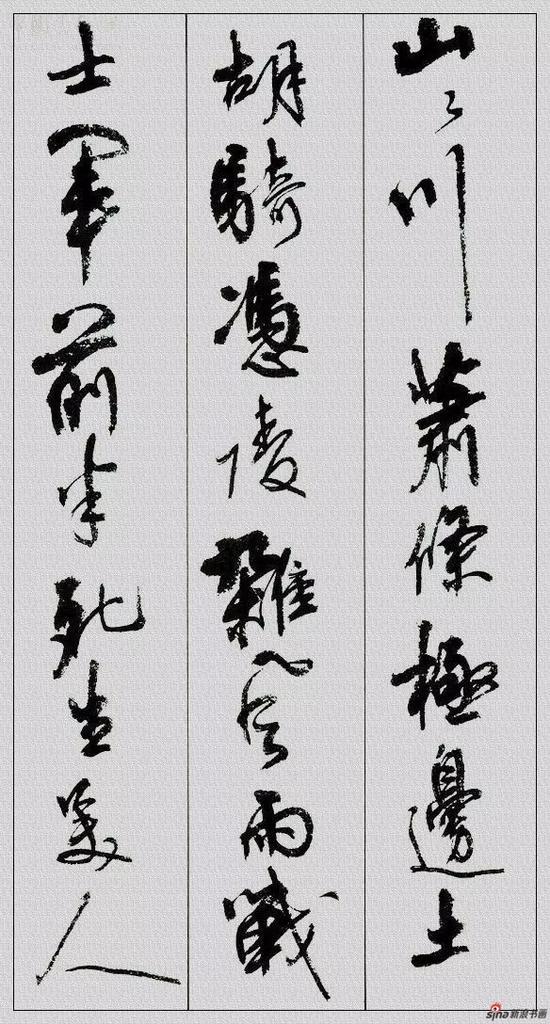 山〻川蕭條極邊土
胡騎憑陵雜風雨戰
士軍前半死生美人
sina新浪书画